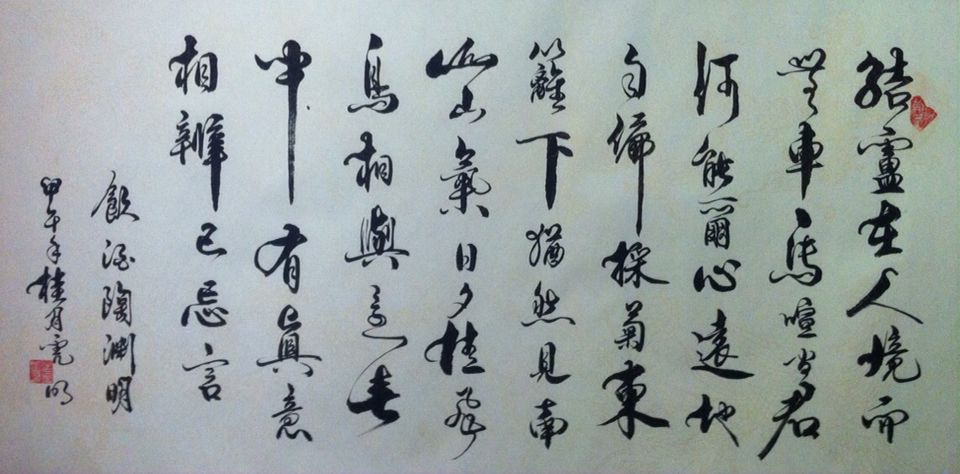 結廬在人境而
無車馬喧問君
何能爾心遠地
自偏採菊東
籬下猶然見南
山山氣日夕佳飛
鳥相與還此
中有真意
相辨已忘言
飲酒陶淵明
甲午年桂月